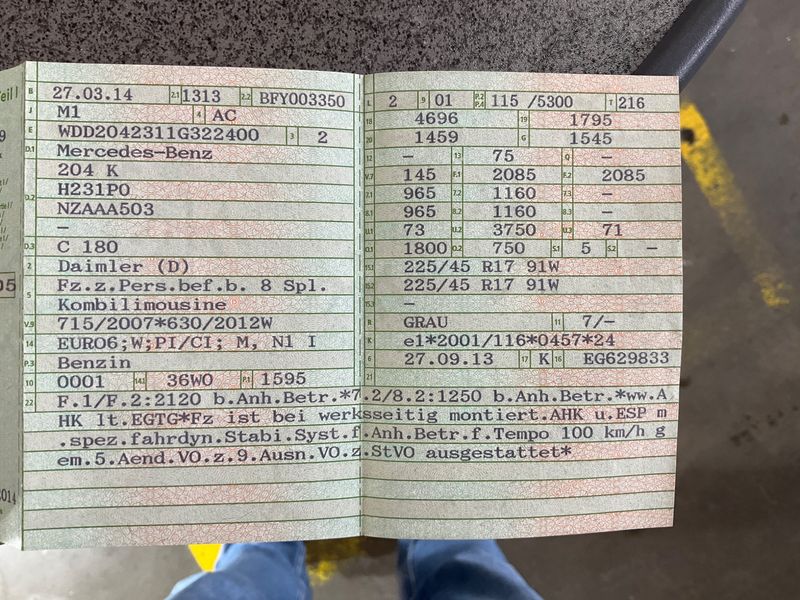 B 27.03.14 2.1 1313 2.2 BFY003350
J M1 4 AC
E WDD2042311G322400 3 2
D.1 Mercedes-Benz
204 K
D.2 H231P0
NZAAA503
–
D.3 C 180
2 Daimler (D)
5 Fz.z.Pers.bef.b. 8 Spl.
Kombilimousine
V.9 715/2007*630/2012W
14 EURO6;W;PI/CI; M, N1 I
P.3 Benzin
10 0001 14.1 36W0 P.1 1595
L 2 9 01 P.2 P.4 115 /5300 T 216
18 4696 19 1795
20 1459 G 1545
12 – 13 75 Q –
V.7 145 F.1 2085 F.2 2085
7.1 965 7.2 1160 7.3 –
8.1 965 8.2 1160 8.3 –
U.1 73 U.2 3750 U.3 71
O.1 1800 O.2 750 S.1 5 S.2 –
15.1 225/45 R17 91W
15.2 225/45 R17 91W
15.3 –
R GRAU 11 7/–
K e1*2001/116*0457*24
6 27.09.13 17 K 16 EG629833
21
22 F.1/F.2:2120 b.Anh.Betr.*7.2/8.2:1250 b.Anh.Betr.*ww.A
HK lt.EGTG*Fz ist bei werksseitig montiert.AHK u.ESP m
.spez.fahrdyn.Stabi.Syst.f.Anh.Betr.f.Tempo 100 km/h g
em.5.Aend.VO.z.9.Ausn.VO.z.StVO ausgestattet*